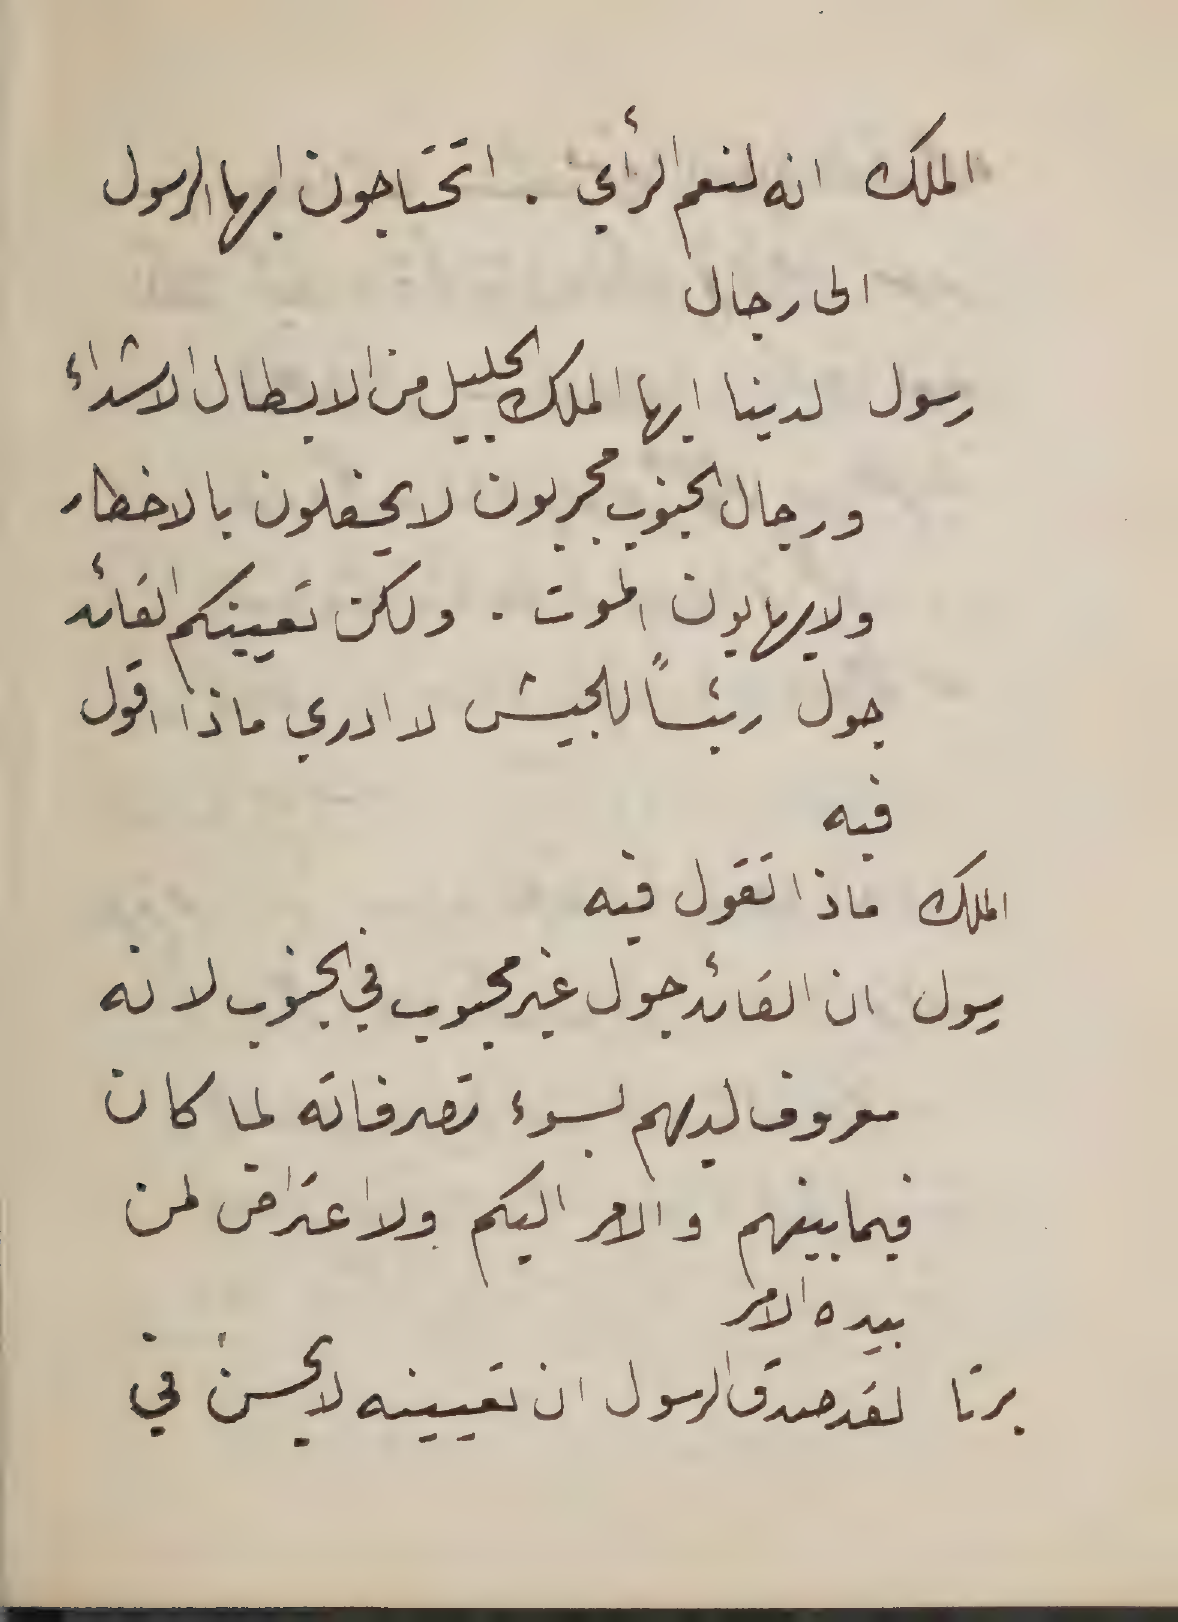 الملك انه لنعم الرأي . اتحتاجون ايها الرسول
الى رجال
رسول لدينا ايها الملك الجليل من الابطال الاشداء
ورجال الجنوب مجربون لا يحفلون بالاخطار
ولا يهابون الموت . ولكن تعيينكم القائد
جول رئيساً للجيش لا ادري ماذا اقول
فيه
الملك ماذا تقول فيه
رسول ان القائد جول غير محبوب في الجنوب لانه
معروف لديهم بسوء تصرفاته لما كان
فيما بينهم والامر اليكم ولا اعتراض لمن
بيده الامر
برتا لقد صدق الرسول ان تعيينه لا يحسن في